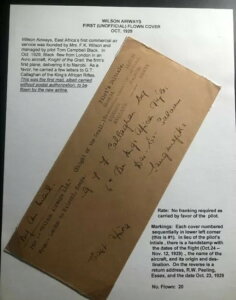 WILSON AIRWAYS
FIRST (UNOFFICIAL) FLOWN COVER
OCT, 1929
Wilson Airways, East Africa's first commercial air
service was founded by Mrs. F.K. Wilson and
managed by pilot Tom Campbell Black. In
Oct, 1929, Black flew from London in the
Avro aircraft, Knight of the Grail, the firm's
first plane, delivering it to Nairobi. As a
favor, he carried a few letters to G.T.
Callaghan of the King's African Rifles.
This was the first mail, albeit carried
without postal authorization, to be
flown by the new airline.
By Air Mail
G. T. Callaghan Esq
The King's African Rifles
Dar es Salaam
Tanganyika
Rate: No franking required as
carried by favor of the pilot.
Markings: Each cover numbered
sequentially in lower left corner
(this is #1). In lieu of the pilot's
initials, there is a handstamp with
the dates of the flight (Oct. 24 -
Nov. 12, 1929), the name of
the aircraft, and its origin and des-
tination. On the reverse is a
return address, R.W. Peeling,
Essex, and the date Oct. 23, 1929
No. Flown: 20